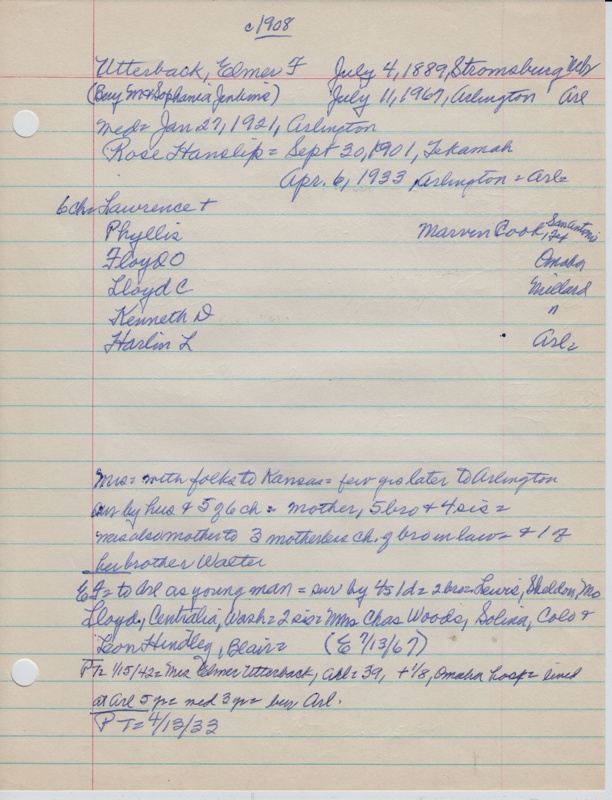 c1908
Utterback, Elmer F July 4, 1889, Stromsburg Nebr
(Benj M & Sophania Jenkins) July 11, 1967, Arlington Arl
med = Jan 27, 1921, Arlington
Rose Hanslip = Sept 30, 1901, Tekamah
Apr. 6, 1933 Arlington = Arl =
6 ch = Lawrence +
Phyllis Marven Cook San Antonio, Tex
Floyd O Omaha
Lloyd C Millard
Kenneth D "
Harlin L Arl =
Mrs = with folks to Kansas = few yrs later to Arlington
sur by hus & 5 of 6 ch = mother, 5 bro & 4 sis =
was also mother to 3 motherless ch. of bro in law = & 1 of
her brother Walter
E F = to Arl as young man = sur by 4s 1d = 2 bro = Lewis, Sheldon, Mo
Lloyd, Centralia, Wash = 2 sis = Mmes Chas Woods, Solina, Colo &
Leon Hindley, Blair = (E 7/13/67)
PT = 1/15/42 = Mrs Elmer Utterback, Arl = 39, + 1/8, Omaha hosp = lived
at Arl 5 yr = med 3 yr = bur Arl.
PT = 4/13/33